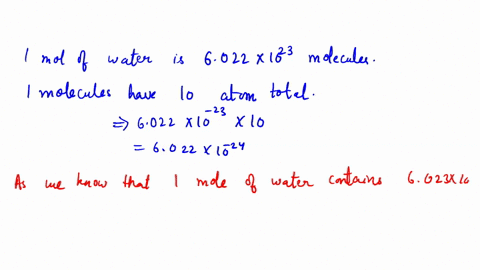 1 mol of water is 6.022 × 10^23 molecules.
1 molecules have 10 atom total.
⇒ 6.022 × 10^-23 × 10
= 6.022 × 10^-24
As we know that 1 mole of water contains 6.023×10